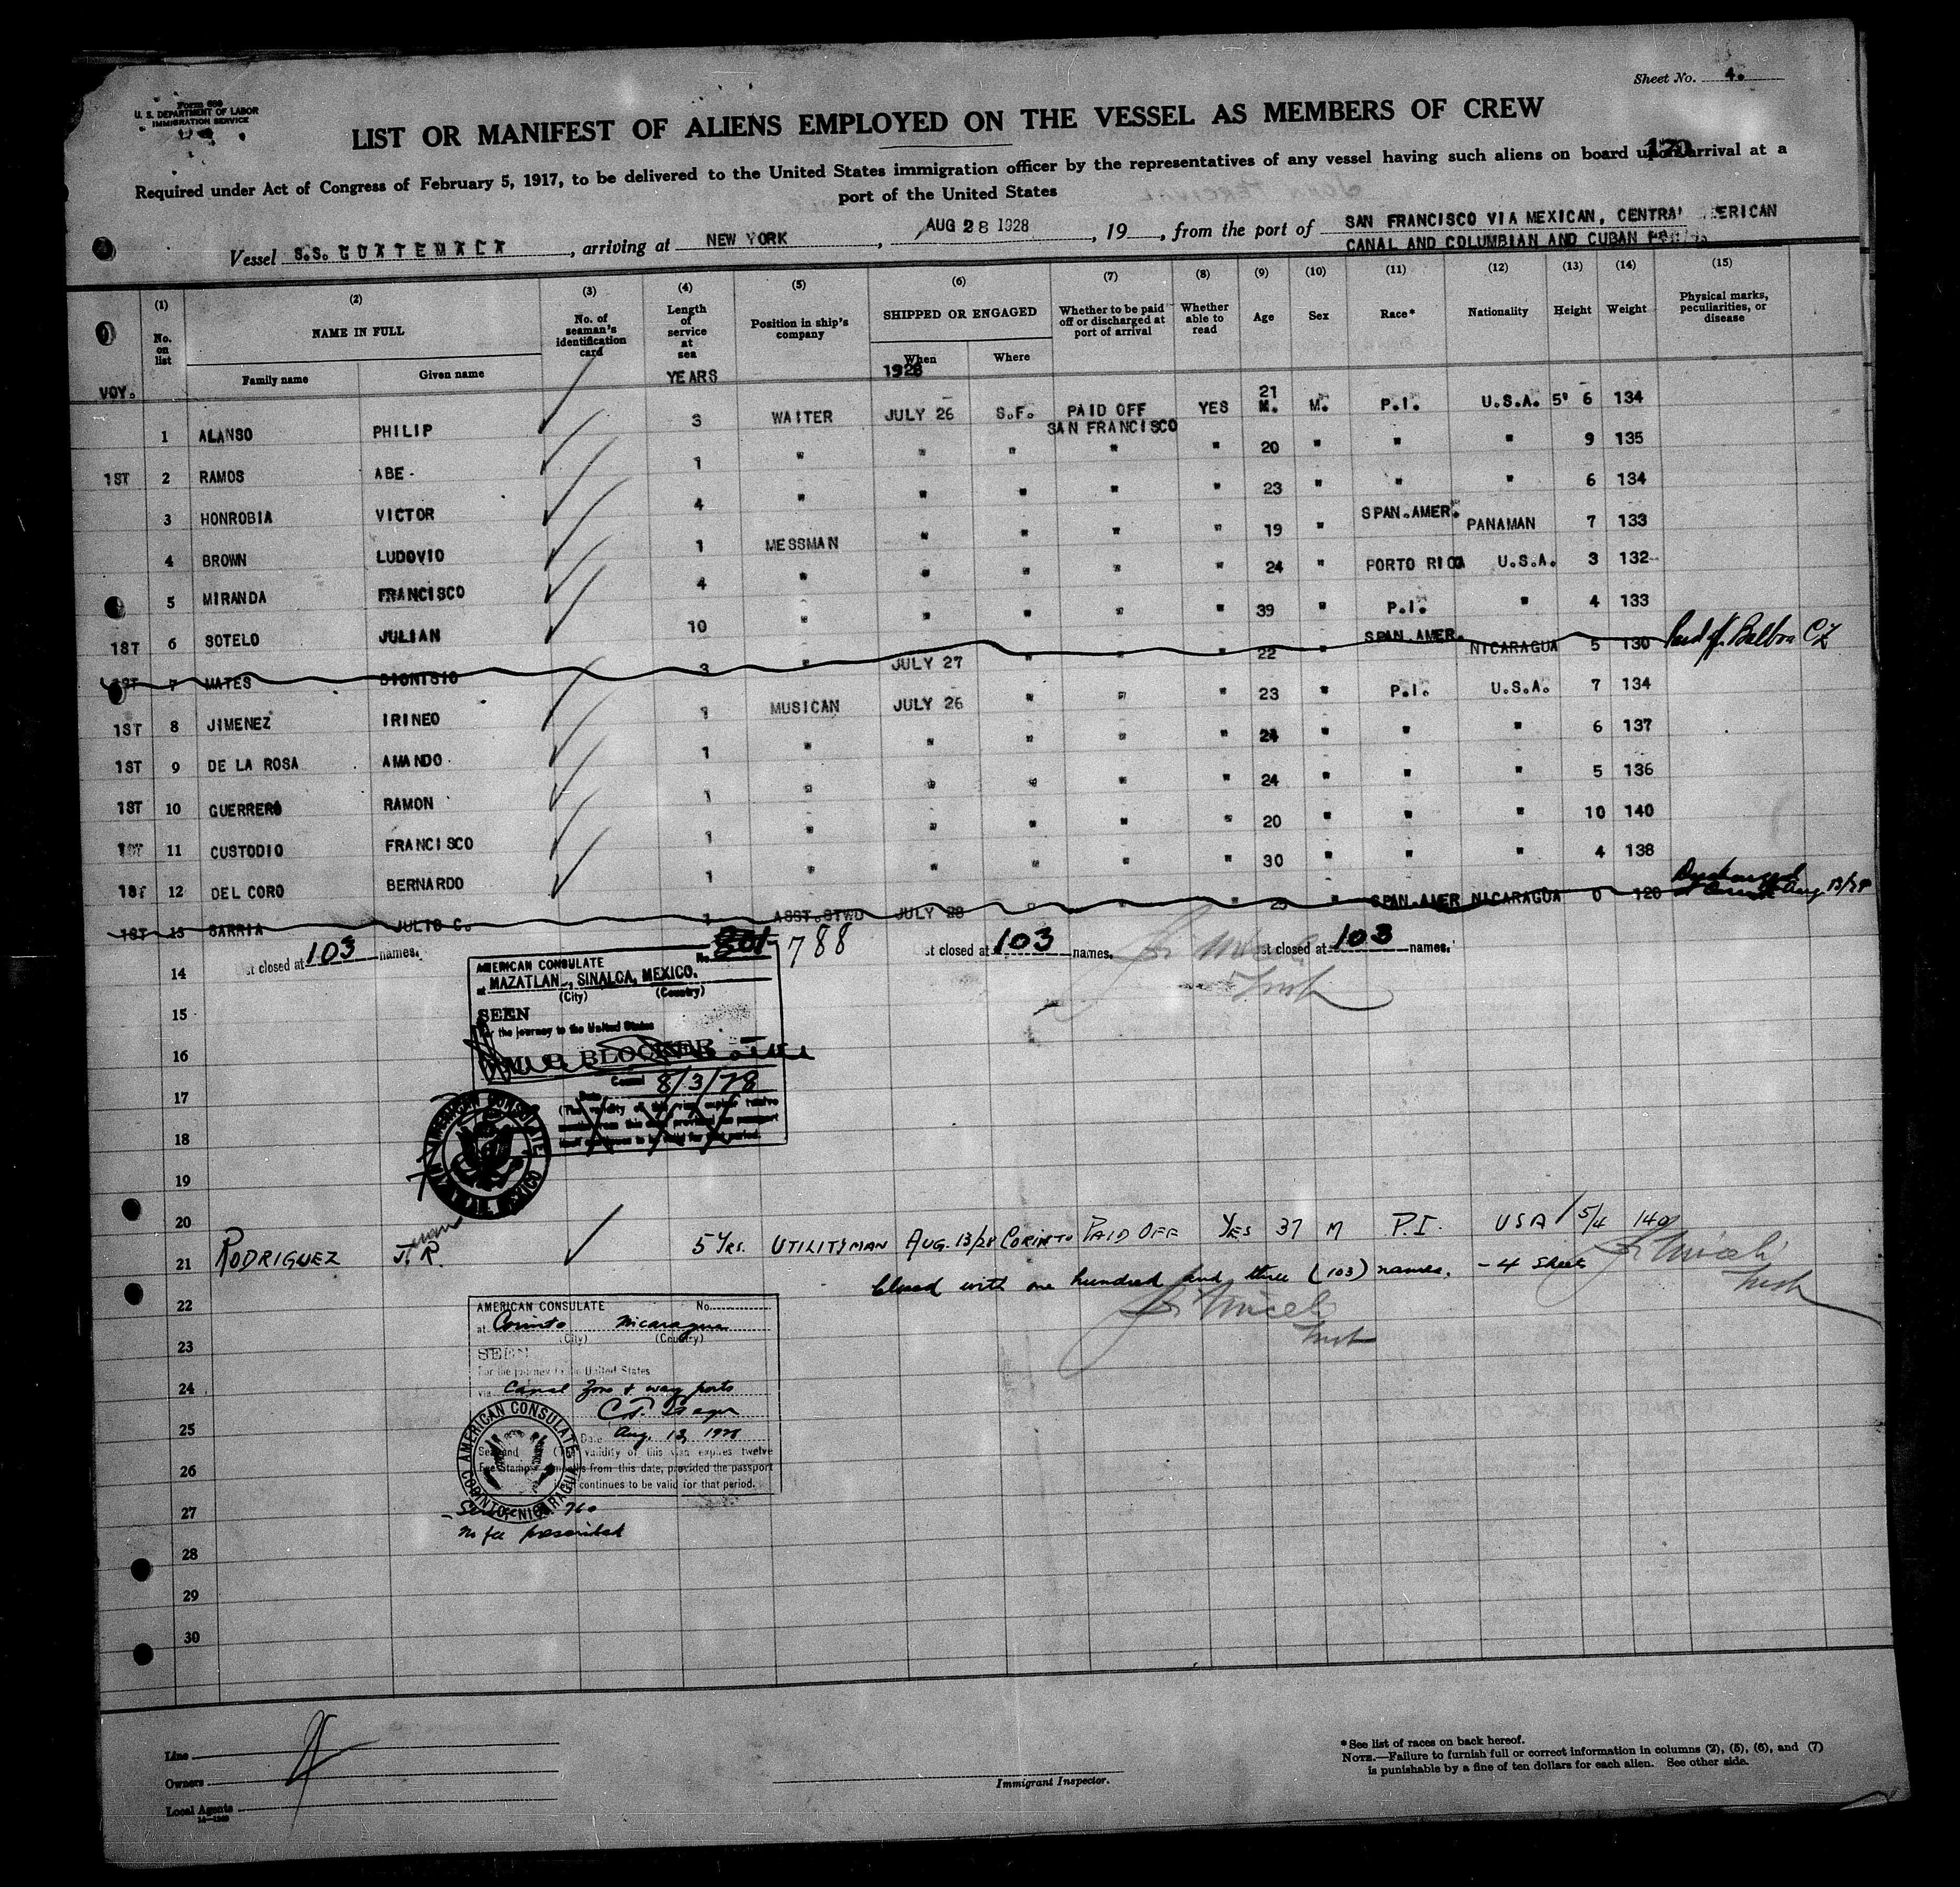 Sheet No. 4.
Form 680
U. S. DEPARTMENT OF LABOR
IMMIGRATION SERVICE
LIST OR MANIFEST OF ALIENS EMPLOYED ON THE VESSEL AS MEMBERS OF CREW
170
Required under Act of Congress of February 5, 1917, to be delivered to the United States immigration officer by the representatives of any vessel having such aliens on board upon arrival at a
port of the United States
Vessel S.S. GUATEMALA, arriving at NEW YORK, AUG 28 1928, 19, from the port of SAN FRANCISCO VIA MEXICAN, CENTRAL AMERICAN
CANAL AND COLUMBIAN AND CUBAN
(1) (2) (3) (4) (5) (6) (7) (8) (9) (10) (11) (12) (13) (14) (15)
No. on list NAME IN FULL No. of seaman's identification card Length of service at sea Position in ship's company SHIPPED OR ENGAGED Whether to be paid off or discharged at port of arrival Whether able to read Age Sex Race* Nationality Height Weight Physical marks, peculiarities, or disease
Family name Given name When Where
VOY. YEARS 1928
1 ALANSO PHILIP 3 WAITER JULY 26 S.F. PAID OFF SAN FRANCISCO YES 21 M. M. P.I. U.S.A. 5' 6 134
1ST 2 RAMOS ABE 1 " " " " " 20 " " " 9 135
3 HONROBIA VICTOR 4 " " " " " 23 " " " 6 134
4 BROWN LUDOVIO 1 MESSMAN " " " " 19 " SPAN.AMER. PANAMAN 7 133
5 MIRANDA FRANCISCO 4 " " " " " 24 " PORTO RICO U.S.A. 3 132
1ST 6 SOTELO JULIAN 10 " " " " " 39 " P.I. " 4 133
1ST 7 MATES DIONISIO 3 " JULY 27 " " " 22 SPAN.AMER. NICARAGUA 5 130 Paid off Balboa CZ
1ST 8 JIMENEZ IRINEO 1 MUSICAN JULY 26 " " " 23 " P.I. U.S.A. 7 134
1ST 9 DE LA ROSA AMANDO 1 " " " " " 24 " " " 6 137
1ST 10 GUERRERO RAMON 1 " " " " " 24 " " " 5 136
1ST 11 CUSTODIO FRANCISCO 1 " " " " " 20 " " " 10 140
1ST 12 DEL CORO BERNARDO 1 " " " " " 30 " " " 4 138
1ST 13 SARRIA JULIO C. 1 ASST.STWD JULY 28 " " " 25 " SPAN.AMER NICARAGUA 0 120 Discharged at Corinto Aug 13/28
List closed at 103 names. List closed at 103 names. List closed at 103 names.
14
AMERICAN CONSULATE No. 788
at MAZATLAN, SINALOA, MEXICO.
(City) (Country)
15
SEEN
For the journey to the United States
16
BLOCKER
Consul 8/3/28
17
Date
(The validity of this visa expires twelve
months from this date, provided the passport
continues to be valid for this period.
18
AMERICAN CONSULATE
MAZATLAN, MEXICO
19
20
21 RODRIGUEZ J. R. 5 YRS. UTILITYMAN AUG. 13/28 CORINTO PAID OFF YES 37 M P.I. USA 5/4 140
Closed with one hundred and three (103) names. - 4 sheets
22
AMERICAN CONSULATE No.
at Corinto Nicaragua
(City) (Country)
23
SEEN
For the journey to the United States
24
via Canal Zone & way ports
25
AMERICAN CONSULATE
CORINTO, NICARAGUA
Date Aug. 13, 1928
Seal and (The validity of this visa expires twelve
26
Fee Stamp months from this date, provided the passport
continues to be valid for that period.
27
760
No fee prescribed
28
29
30
Line
Owners
Local Agents
14—1240
Immigrant Inspector.
*See list of races on back hereof.
NOTE.—Failure to furnish full or correct information in columns (2), (5), (6), and (7)
is punishable by a fine of ten dollars for each alien. See other side.